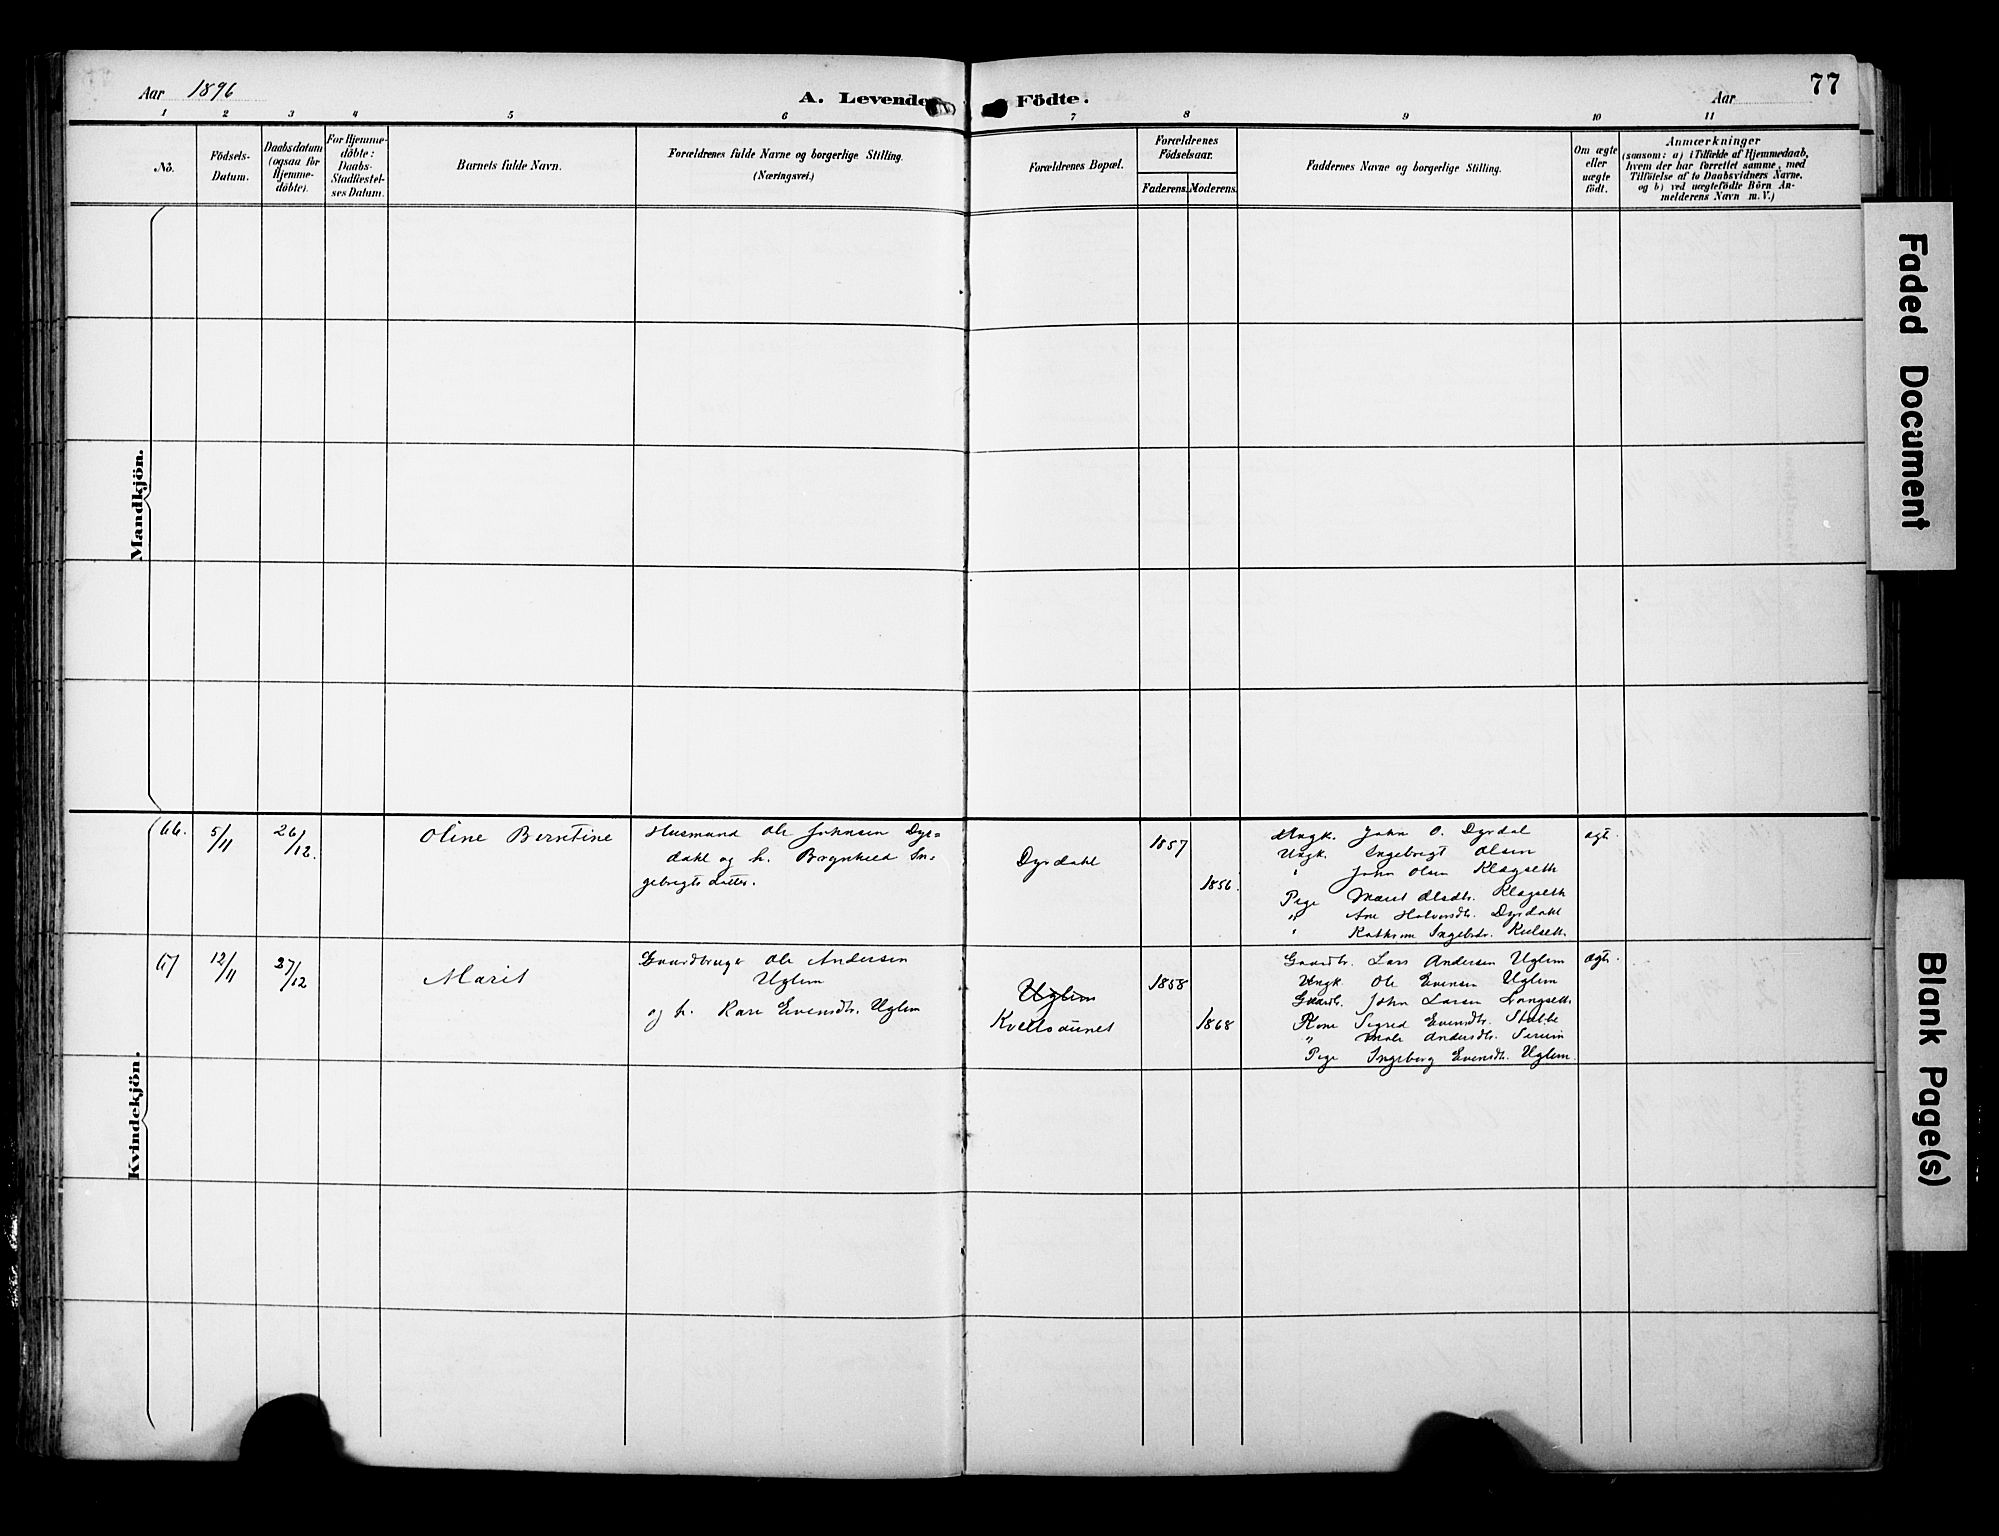 Aar 1896
A. Levende Födte.
Aar
77
1 2 3 4 5 6 7 8 9 10 11
No.
Födsels-
Datum.
Daabsdatum
(ogsaa for
Hjemme-
døbte).
For Hjemme-
døbte:
Daabs-
Stadfæstel-
ses Datum.
Barnets fulde Navn.
Forældrenes fulde Navne og borgerlige Stilling.
(Næringsvei.)
Forældrenes Bopæl.
Forældrenes
Födselsaar.
Faderens.
Moderens.
Faddernes Navne og borgerlige Stilling.
Om ægte
eller
uægte
födt.
Anmærkninger
(saasom: a) i Tilfælde af Hjemmedaab,
hvem der har forrettet samme, med
Tilføielse af to Daabsvidners Navne,
og b) ved uægtefödte Börn An-
melderens Navn m. V.)
Mandkjön.
Kvindekjön.
66.
5/11
26/12.
Oline Berntine
Husmand Ole Johnsen Dyr=
dahl og h. Brynhild In=
gebrigtsdatter.
Dyrdahl
1857
1856.
Ungk. John O. Dyrdal
Ungk. Ingebrigt Olsen
" John Olsen Klegseth
Pige Marit Olsdtr. Klegseth
" Ane Halvorsdtr. Dyrdahl
" Kathrine Ingebrdr.
ægte.
67
12/11
27/12
Marit
Gaardbruger Ole Andersen
Uglem
og h. Kari Evensdtr. Uglem
Uglem
Kvellodunet
1858
1868
Gaardbr. Lars Andersen Uglem
Ungk. Ole Evensen Uglem
Gaardbr. John Larsen Langseth
Kone Sigrid Evensdtr. Stubbe
" Andersdtr.
Pige Ingeborg Evensdtr. Uglem.
ægte.
Faded Document
Blank Page(s)